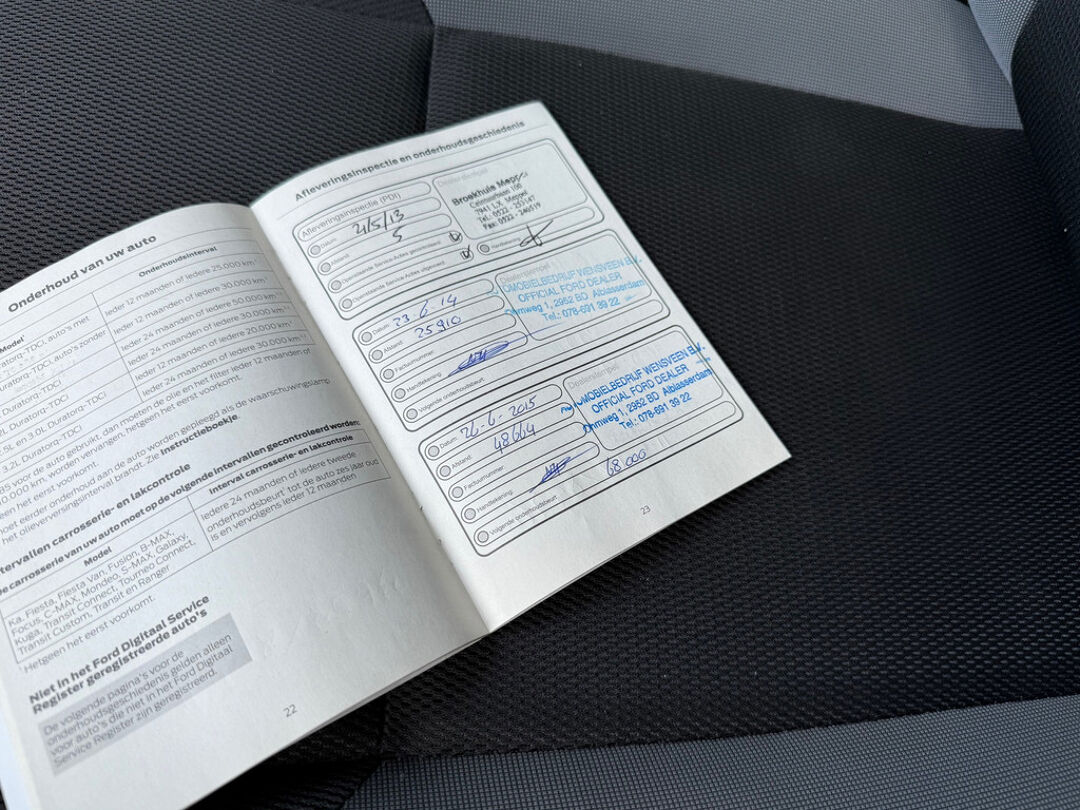 Onderhoud van uw auto
Model
Onderhoudsinterval
Ieder 12 maanden of iedere 25.000 km
Ieder 12 maanden of iedere 30.000 km
Ieder 24 maanden of iedere 50.000 km
Ieder 24 maanden of iedere 30.000 km
Ieder 12 maanden of iedere 20.000 km
Ieder 24 maanden of iedere 30.000 km
Duratorq-TDCi
en 3.0L Duratorq-TDCi
3.2L Duratorq-TDCi
voor de auto gebruikt, dan moeten de olie en het filter ieder 12 maanden of
worden vervangen, hetgeen het eerst voorkomt.
eerder onderhoud aan de auto worden gepleegd als de waarschuwingslamp
het olieverversingsinterval brandt. Zie Instructieboekje.
carrosserie- en lakcontrole
carrosserie van uw auto moet op de volgende intervallen gecontroleerd worden:
Model
Interval carrosserie- en lakcontrole
Ka, Fiesta, Fiesta Van, Fusion, B-MAX,
Focus, C-MAX, Mondeo, S-MAX, Galaxy,
Kuga, Transit Connect, Tourneo Connect,
Transit Custom, Transit en Ranger
Iedere 24 maanden of iedere tweede
onderhoudsbeurt tot de auto zes jaar oud
is en vervolgens ieder 12 maanden
Hetgeen het eerst voorkomt.
Niet in het Ford Digitaal Service
Register geregistreerde auto's
De volgende pagina's voor de
onderhoudsgeschiedenis gelden alleen
voor auto's die niet in het Ford Digitaal
Service Register zijn geregistreerd.
22
Afleveringsinspectie en onderhoudsgeschiedenis
Afleveringsinspectie (PDI)
Datum: 21/5/13
Afstand: 5
Openstaande Service-Acties gecontroleerd
Openstaande Service-Acties uitgevoerd
Dealerstempel
Broekhuis Meppel
7941 LX Meppel
Tel.: 0522 - 253147
Fax: 0522 - 240519
Handtekening:
Datum: 23-6-14
Afstand: 25910
Factuurnummer:
Handtekening:
Volgende onderhoudsbeurt:
Dealerstempel
OMOBIELBEDRIJF WENSVEEN B.V.
OFFICIAL FORD DEALER
Ohmweg 1, 2952 BD Alblasserdam
Tel.: 078-691 39 22
Datum: 26-6-2015
Afstand: 48664
Factuurnummer:
Handtekening:
Volgende onderhoudsbeurt: 68.000
Dealerstempel
MOBIELBEDRIJF WENSVEEN B.V.
OFFICIAL FORD DEALER
Ohmweg 1, 2952 BD Alblasserdam
Tel.: 078-691 39 22
23